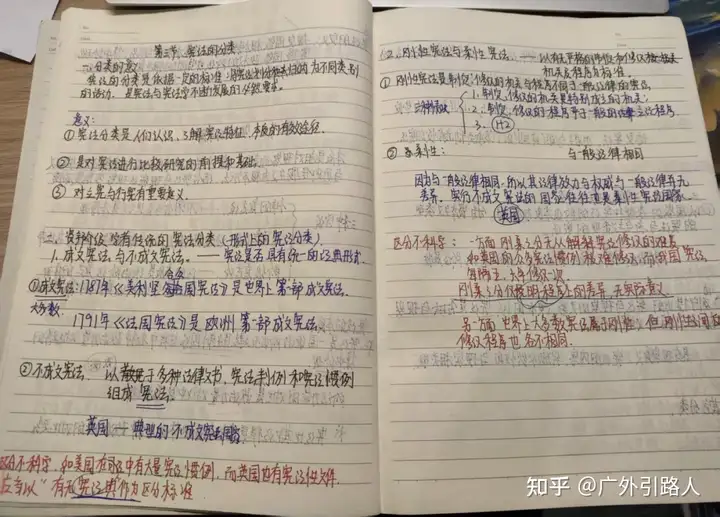 第三节、宪法的分类
一、分类的意义
宪法的分类是依据一定的标准,将宪法划分归类为不同类别
的活动,是宪法与宪法学不断发展的必然要求。
意义:
① 宪法分类是人们认识、了解宪法特征、本质的有效途径.
② 是对宪法进行比较研究的前提和基础.
③ 对立宪与行宪有重要意义.
二、资产阶级学者传统的宪法分类(形式上的宪法分类)
1. 成文宪法与不成文宪法. —— 宪法是否具有统一的法典形式.
①成文宪法:1787年《美利坚合众国宪法》是世界上第一部成文宪法.
大多数 1791年《法国宪法》是欧洲第一部成文宪法.
②不成文宪法. 以散见于多种法律文书、宪法判例和宪法惯例
组成宪法.
英国——典型的不成文宪法国家
区分不科学. 如美国在司法中有大量宪法惯例,而英国也有宪法性文件.
应当以"有无宪法典"作为区分标准
2. 刚性宪法与柔性宪法. —— 以有无严格的制定和修改
机关及程序为标准
① 刚性宪法是制定、修改的机关与程序不同于一般法律的宪法.
三种情况
1. 制定、修改的机关是特别成立的机关;
2. 制定、修改的程序严于一般的立法程序
3. (1+2)
② 柔性: 与一般法律相同
因为与一般法律相同,所以其法律效力与权威与一般法律并无
差异. 实行不成文宪法的国家往往也是柔性宪法国家.
英国
区分不科学: 一方面刚柔之分无从解释宪法修改的难易
如美国的
刚柔之分仅指明程序上的差异,无实际意义.
另一方面,世界上大多数宪法属于刚性,但刚性
修改程序也各不相同.
知乎 @广外引路人